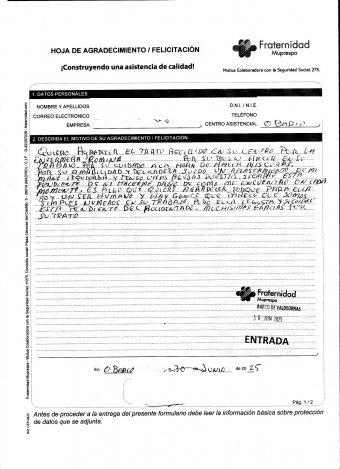 HOJA DE AGRADECIMIENTO / FELICITACIÓN
Fraternidad
Muprespa
¡Construyendo una asistencia de calidad!
Mutua Colaboradora con la Seguridad Social, 275.
1. DATOS PERSONALES
NOMBRE Y APELLIDOS
D.N.I. / N.I.E.
CORREO ELECTRÓNICO
TELÉFONO
EMPRESA
CENTRO ASISTENCIAL O BARCO
2. DESCRIBA EL MOTIVO DE SU AGRADECIMIENTO / FELICITACIÓN
QUIERO AGRADECER EL TRATO RECIBIDO EN SU CENTRO POR LA
ENFERMERA ROMINA POR SU BUEN HACER EN SU
TRABAJO, POR SU CUIDADO A LA HORA DE HACER MIS CURAS,
POR SU AMABILIDAD Y DELICADEZA. SUFRO UN APLASTAMIENTO DE MI
MANO IZQUIERDA Y TENGO UNAS AGUJAS PUESTAS. SIEMPRE ESTÁ
PENDIENTE DE NO HACERME DAÑO DE COMO ME ENCUENTRO EN CADA
MOMENTO, ES ALGO QUE QUIERO AGRADECER PORQUE PARA ELLA
SOY UN SER HUMANO Y HAY GENTE QUE PARECE QUE SOMOS
SIMPLES NUMEROS EN SU TRABAJO, PERO ELLA
ESTA PENDIENTE DEL ACCIDENTADO. MUCHISIMAS GRACIAS POR
SU TRATO
Fraternidad
Muprespa
BARCO DE VALDEORRAS
30 JUN 2025
ENTRADA
En O BARCO 30 JUNIO de 20 25
Pág. 1 / 2
Antes de proceder a la entrega del presente formulario debe leer la información básica sobre protección
de datos que se adjunta.